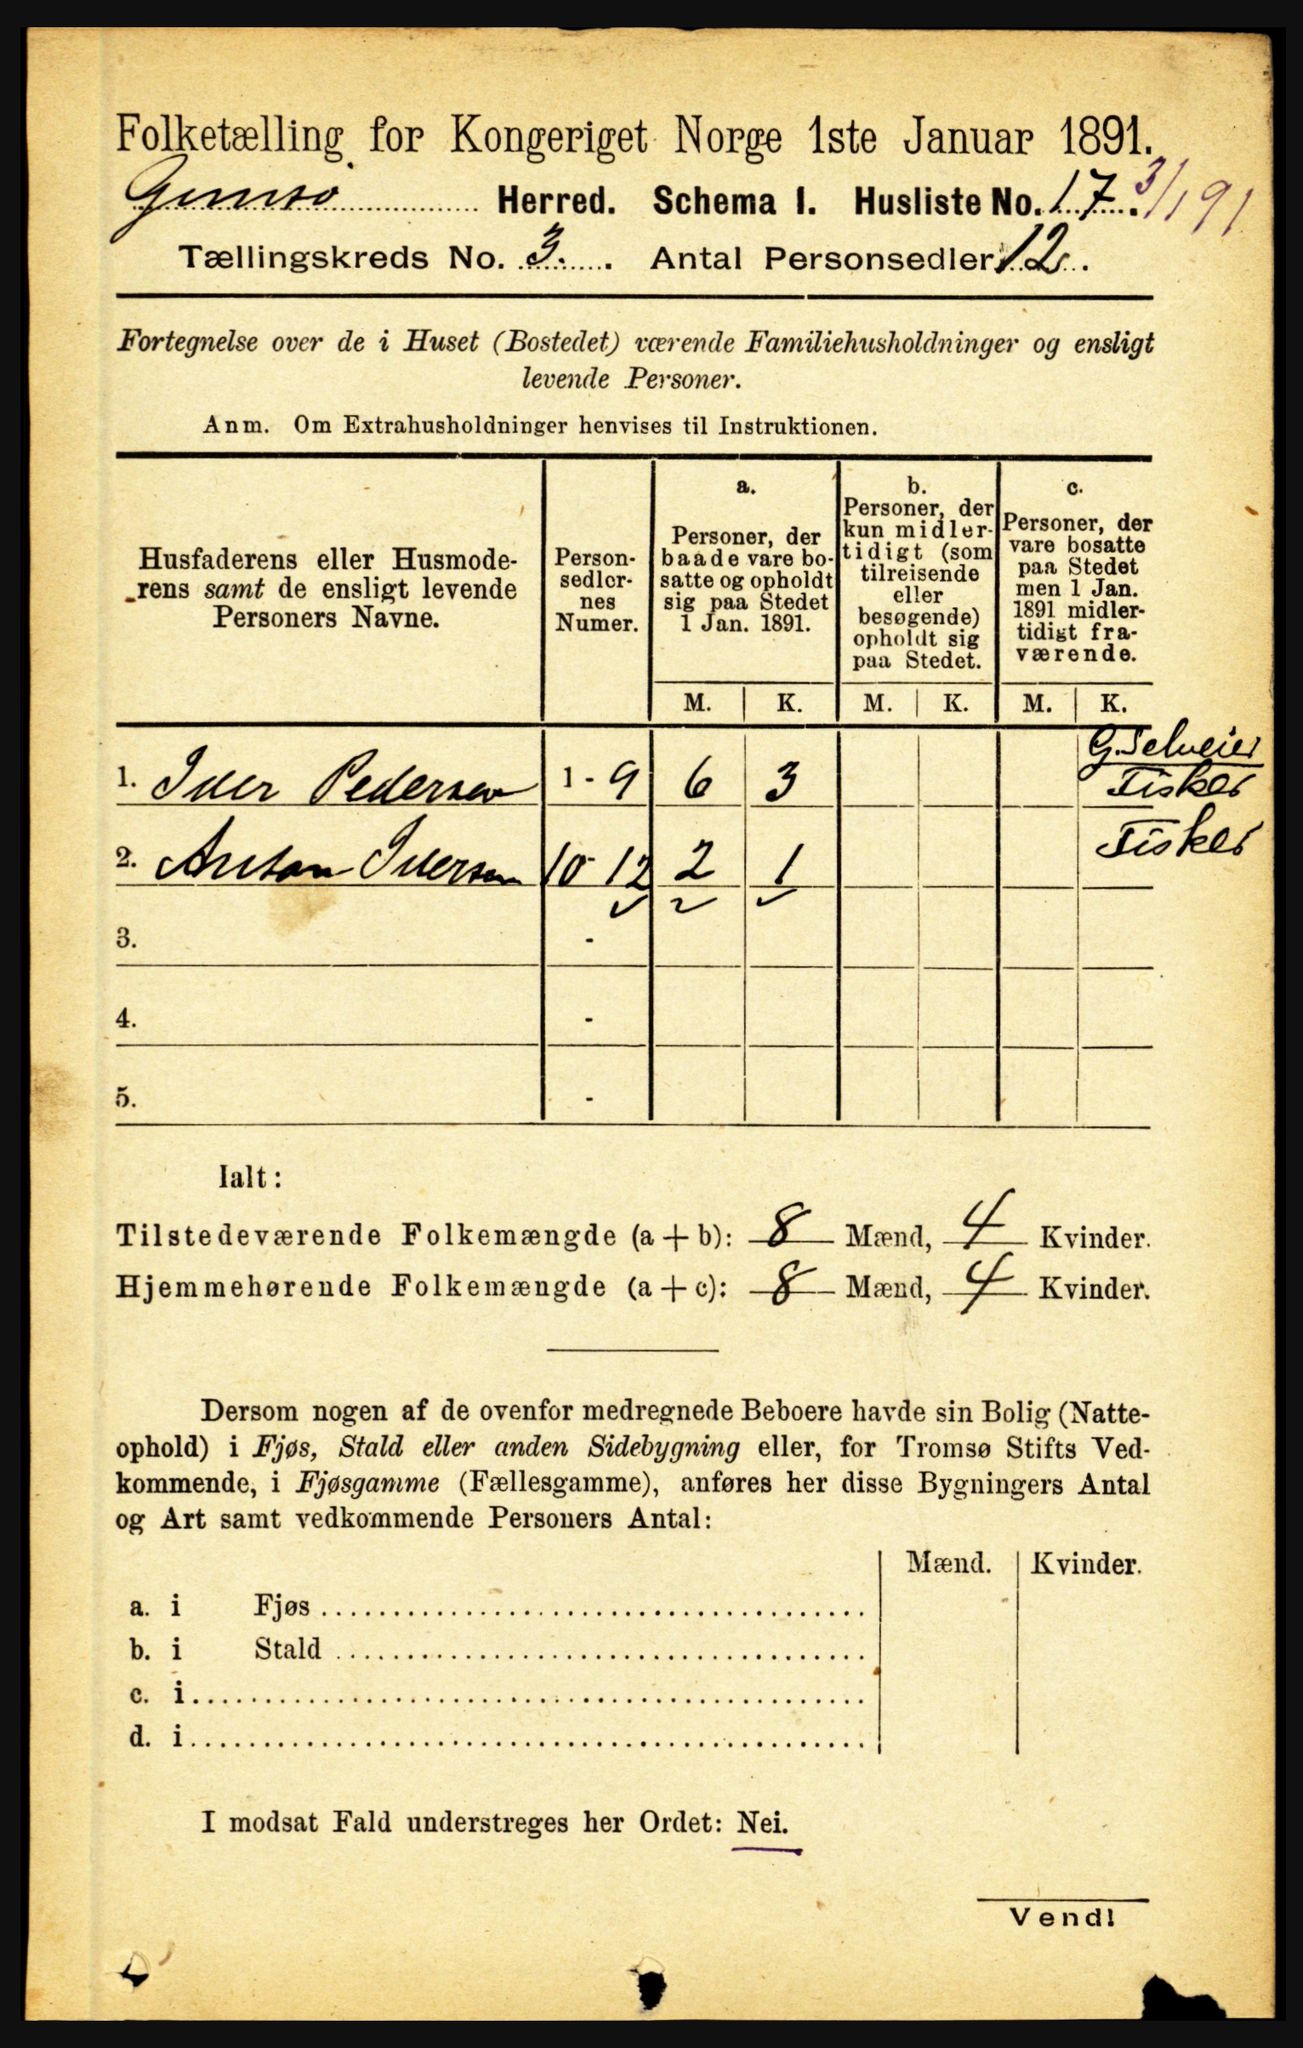 Folketælling for Kongeriget Norge 1ste Januar 1891.
Gimsø Herred. Schema I. Husliste No. 17. 3/1 91
Tællingskreds No. 3. Antal Personsedler 12.
Fortegnelse over de i Huset (Bostedet) værende Familiehusholdninger og ensligt
levende Personer.
Anm. Om Extrahusholdninger henvises til Instruktionen.
Husfaderens eller Husmode-
rens samt de ensligt levende
Personers Navne.
Person-
sedler-
nes
Numer.
a.
Personer, der
baade vare bo-
satte og opholdt
sig paa Stedet
1 Jan. 1891.
b.
Personer, der
kun midler-
tidigt (som
tilreisende
eller
besøgende)
opholdt sig
paa Stedet.
c.
Personer, der
vare bosatte
paa Stedet
men 1 Jan.
1891 midler-
tidigt fra-
værende.
M. K. M. K. M. K.
1. Iver Pedersen 1 - 9 6 3 G. Selveier
Fisker
2. Anton Iversen 10 - 12 2 1 Fisker
3. -
4. -
5. -
Ialt:
Tilstedeværende Folkemængde (a + b): 8 Mænd, 4 Kvinder.
Hjemmehørende Folkemængde (a + c): 8 Mænd, 4 Kvinder.
Dersom nogen af de ovenfor medregnede Beboere havde sin Bolig (Natte-
ophold) i Fjøs, Stald eller anden Sidebygning eller, for Tromsø Stifts Ved-
kommende, i Fjøsgamme (Fællesgamme), anføres her disse Bygningers Antal
og Art samt vedkommende Personers Antal:
Mænd. Kvinder.
a. i Fjøs
b. i Stald
c. i
d. i
I modsat Fald understreges her Ordet: Nei.
Vend!